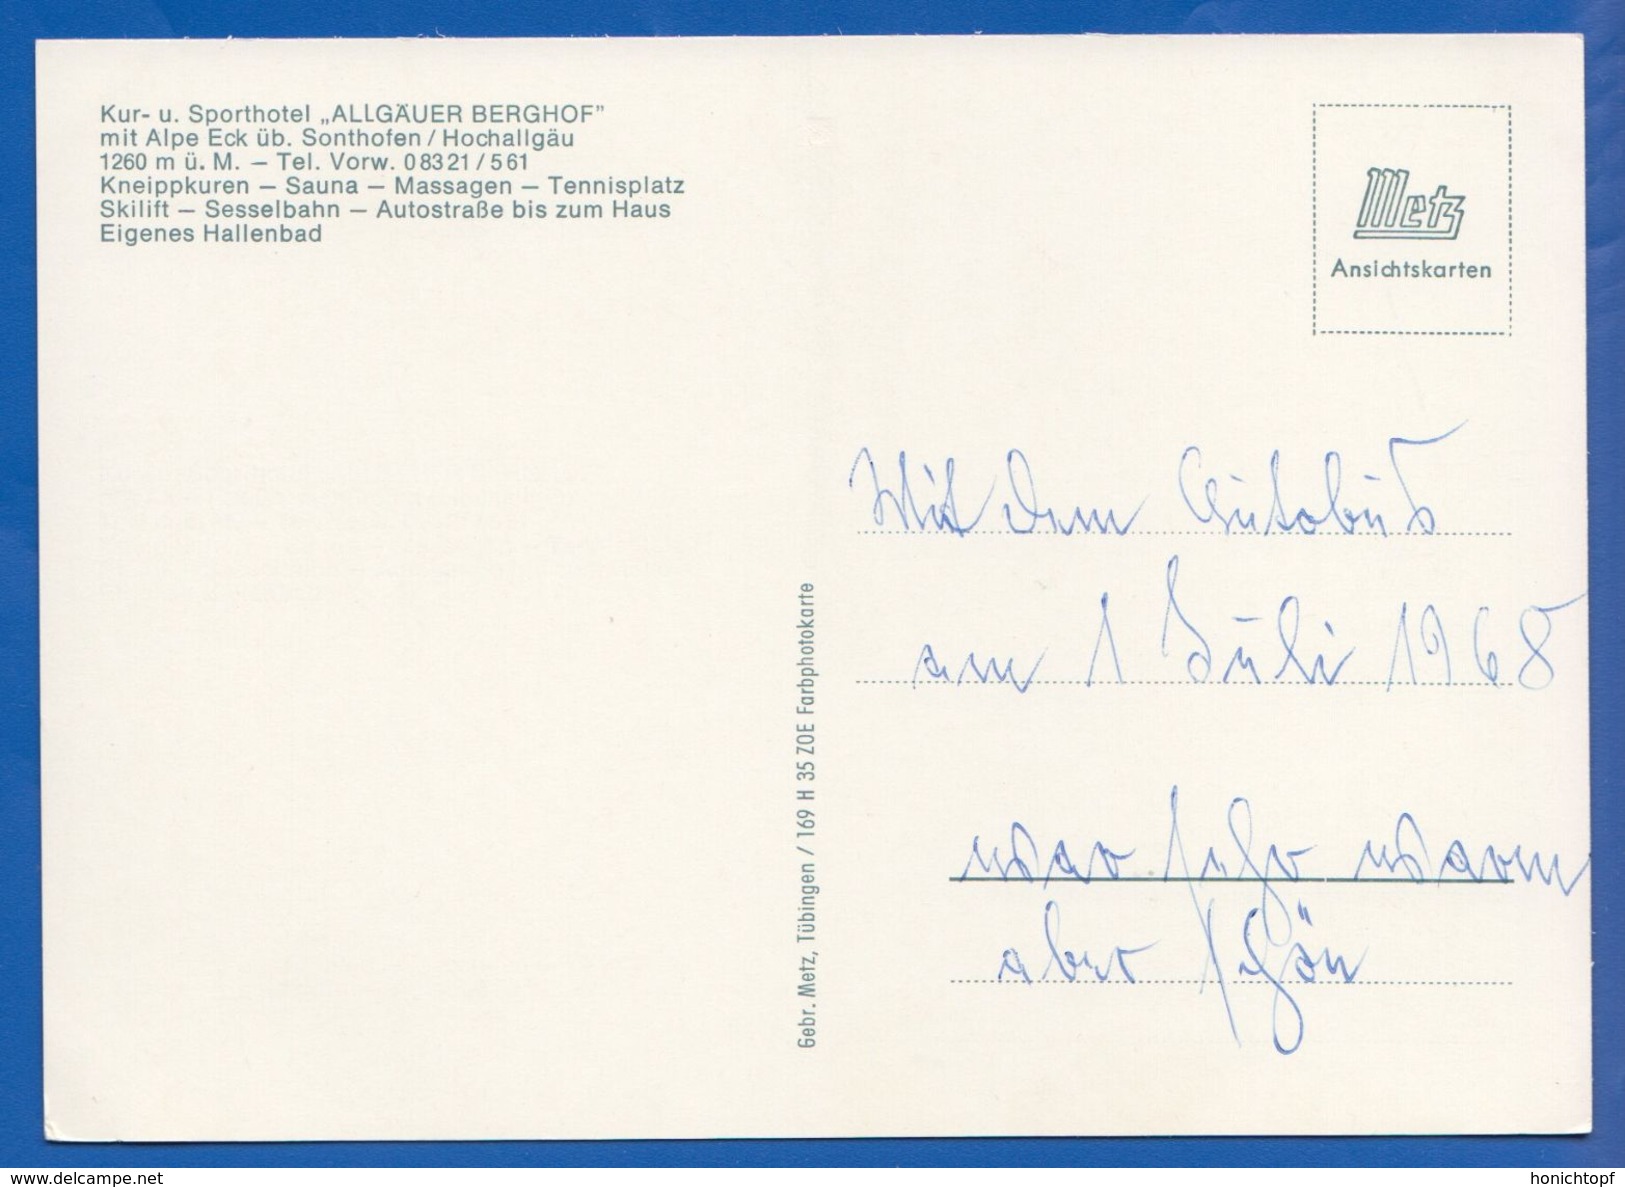 Kur- u. Sporthotel „ALLGÄUER BERGHOF”
mit Alpe Eck üb. Sonthofen / Hochallgäu
1260 m ü. M. – Tel. Vorw. 0 83 21 / 5 61
Kneippkuren – Sauna – Massagen – Tennisplatz
Skilift – Sesselbahn – Autostraße bis zum Haus
Eigenes Hallenbad
Metz
Ansichtskarten
Gebr. Metz, Tübingen / 169 H 35 ZOE Farbphotokarte
Mit dem Autobus
am 1 Juli 1968
war sehr warm
aber schön
delcampe.net
honichtopf